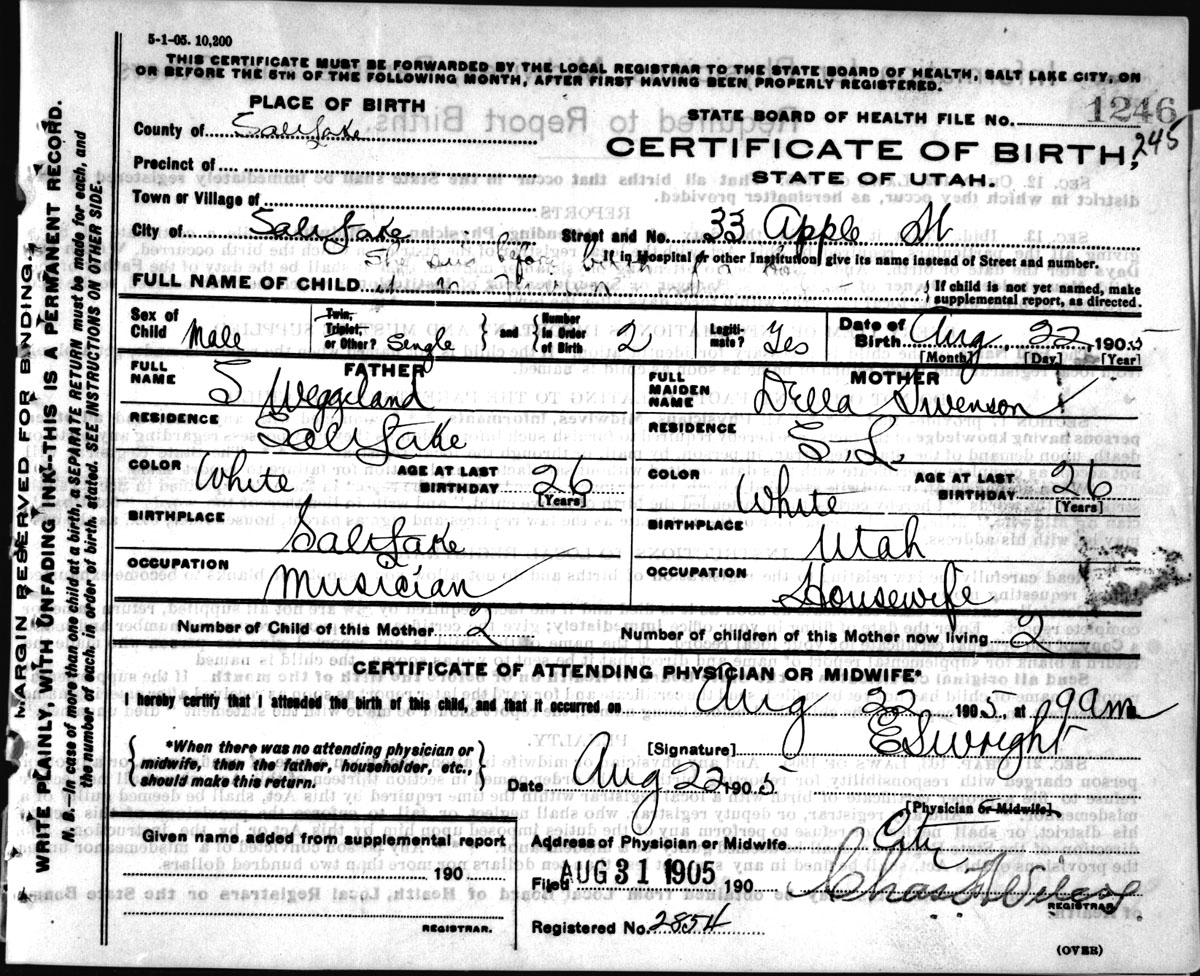 5-1-05. 10,200
THIS CERTIFICATE MUST BE FORWARDED BY THE LOCAL REGISTRAR TO THE STATE BOARD OF HEALTH, SALT LAKE CITY, ON
OR BEFORE THE 5TH OF THE FOLLOWING MONTH, AFTER FIRST HAVING BEEN PROPERLY REGISTERED.
PLACE OF BIRTH
STATE BOARD OF HEALTH FILE NO. 1246
245
County of Salt Lake
CERTIFICATE OF BIRTH,
Precinct of
STATE OF UTAH.
Town or Village of
City of Salt Lake
Street and No. 33 Apple St
If in Hospital or other Institution, give its name instead of Street and number.
FULL NAME OF CHILD
If child is not yet named, make
supplemental report, as directed.
Sex of Child Male
Twin, Triplet, or Other? Single
and Number in Order of Birth 2
Legitimate? Yes
Date of Birth Aug 22, 1905
[Month] [Day] [Year]
FATHER
FULL NAME S Weggeland
RESIDENCE Salt Lake
COLOR White
AGE AT LAST BIRTHDAY 26
[Years]
BIRTHPLACE Salt Lake
OCCUPATION Musician
MOTHER
FULL MAIDEN NAME Della Swenson
RESIDENCE S. L.
COLOR White
AGE AT LAST BIRTHDAY 26
[Years]
BIRTHPLACE Utah
OCCUPATION Housewife
Number of Child of this Mother 2
Number of children of this Mother now living 2
CERTIFICATE OF ATTENDING PHYSICIAN OR MIDWIFE*
I hereby certify that I attended the birth of this child, and that it occurred on Aug 22 1905, at 9 am
*When there was no attending physician or
midwife, then the father, householder, etc.,
should make this return.
[Signature] E S Wright
Date Aug 22 1905
[Physician or Midwife]
Given name added from supplemental report
190
REGISTRAR.
Address of Physician or Midwife City
Filed AUG 31 1905 190
REGISTRAR
Registered No. 2854
(OVER)
MARGIN RESERVED FOR BINDING
WRITE PLAINLY, WITH UNFADING INK—THIS IS A PERMANENT RECORD.
N. B.—In case of more than one child at a birth, a SEPARATE RETURN must be made for each, and
the number of each, in order of birth, stated. SEE INSTRUCTIONS ON OTHER SIDE.